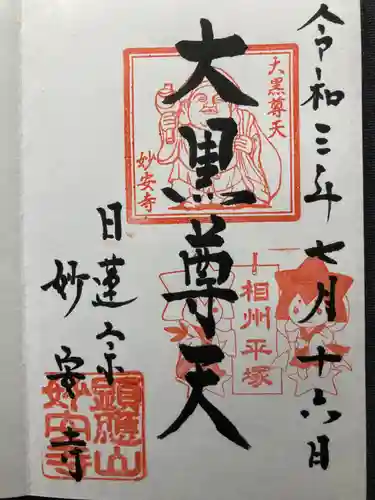 令和三年七月十六日
大黒尊天
大黒尊天
妙安寺
相州平塚
日蓮宗
妙安寺
顕勝山
妙安寺